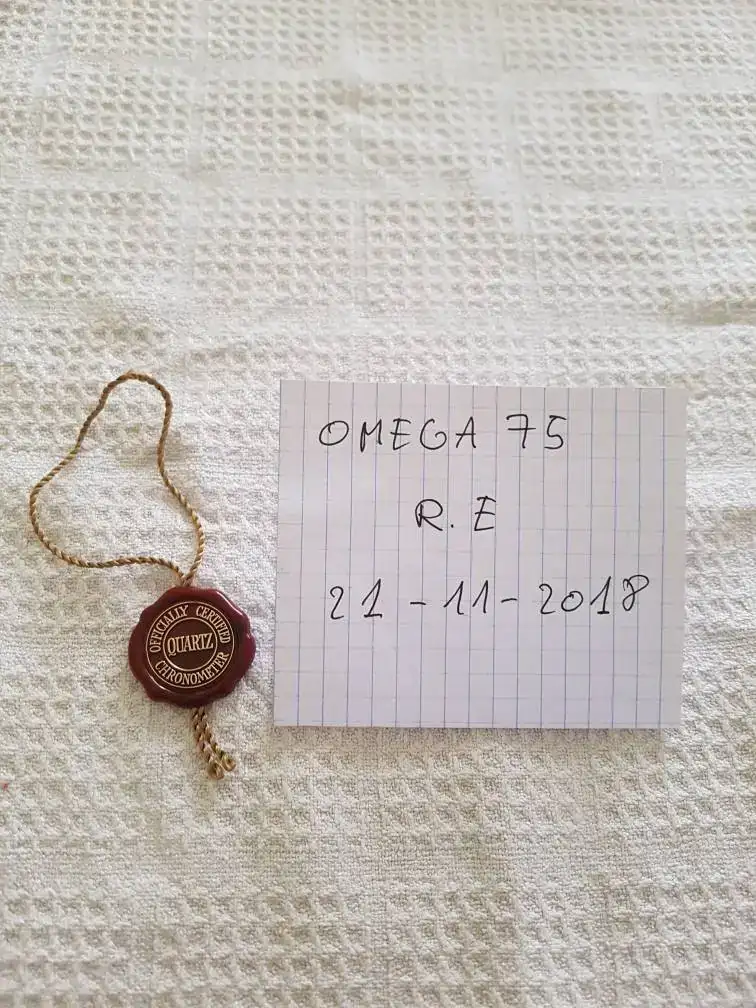 OFFICIALLY CERTIFIED
QUARTZ
CHRONOMETER
OMEGA 75
R. E
21 - 11 - 2018